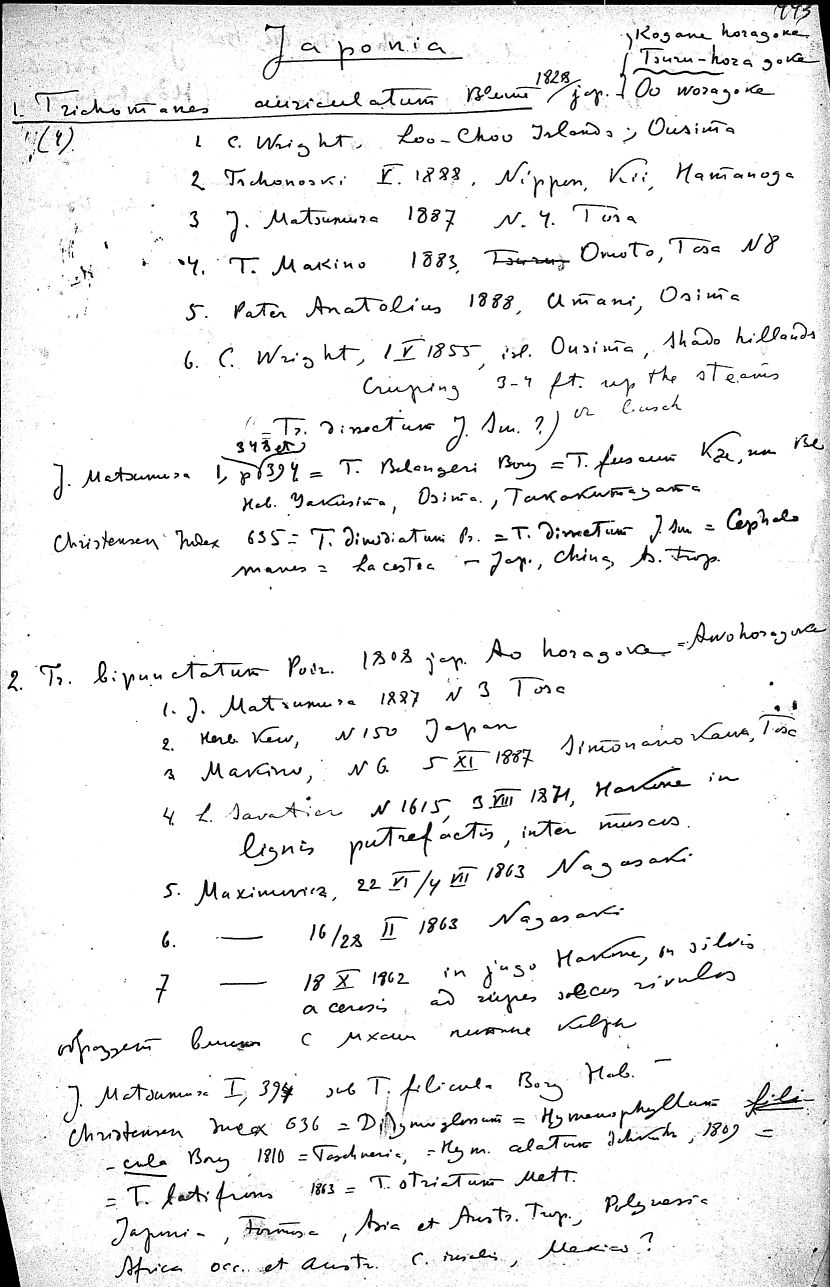 993
Japonia
Kogane horagoke
Tsuru-hora goke
1. Trichomanes auriculatum Blume 1828 / jap. Oo horagoke
(4) 1 C. Wright, Loo-Choo Islands, Ousima
2 Tschonoski V. 1888, Nippon, Kii, Hamanoga
3 J. Matsumura 1887 N. 4. Tosa
4. T. Makino 1883, Omoto, Tosa N8
5. Pater Anatolius 1888, Umani, Osima
6. C. Wright, 1 V 1855, isl. Ousima, shado hillands
Cruping 3-4 ft. up the steams
or busch
(= Tr. dissectum J. Sm. ?)
348 et
J. Matsumura I, p 394 = T. Belangeri Bory = T. fuscum Kze, non Bl
Hab. Yakusima, Osima, Takakumayama
Christensen Index 635 = T. dimidiatum Pr. = T. dissectum J. Sm = Cephalo
manes = Lacostea - Jap., China, As. trop.
2. Tr. bipunctatum Poir. 1808 jap. Ao horagoke = Awohoragoke
1. J. Matsumura 1887 N 3 Tosa
2. Herb. Kew, N 150 Japan
3 Makino, N 6. 5 XI 1887 Simonanokawa, Tosa
4. L. Savatier N 1615, 3 VIII 1871, Hakone in
lignis putrefactis, inter muscos.
5. Maximovicz, 22 VI/4 VII 1863 Nagasaki
6. — 16/28 II 1863 Nagasaki
7 — 18 X 1862 in jugo Hakone, in silvis
acerosis ad rupes secus rivulos
образцы вместе с мхами
J. Matsumura I, 394 sub T. filicula Bory Hab. —
Christensen Index 636 = Didymoglossum = Hymenophyllum fili-
-cula Bory 1810 = Taschneria, = Hym. alatum Schkuhr, 1809 =
= T. latifrons 1863 = T. striatum Mett.
Japonia, Formosa, Asia et Austr. Trop., Polynesia
Africa occ. et austr. c. insulis, Mexico?